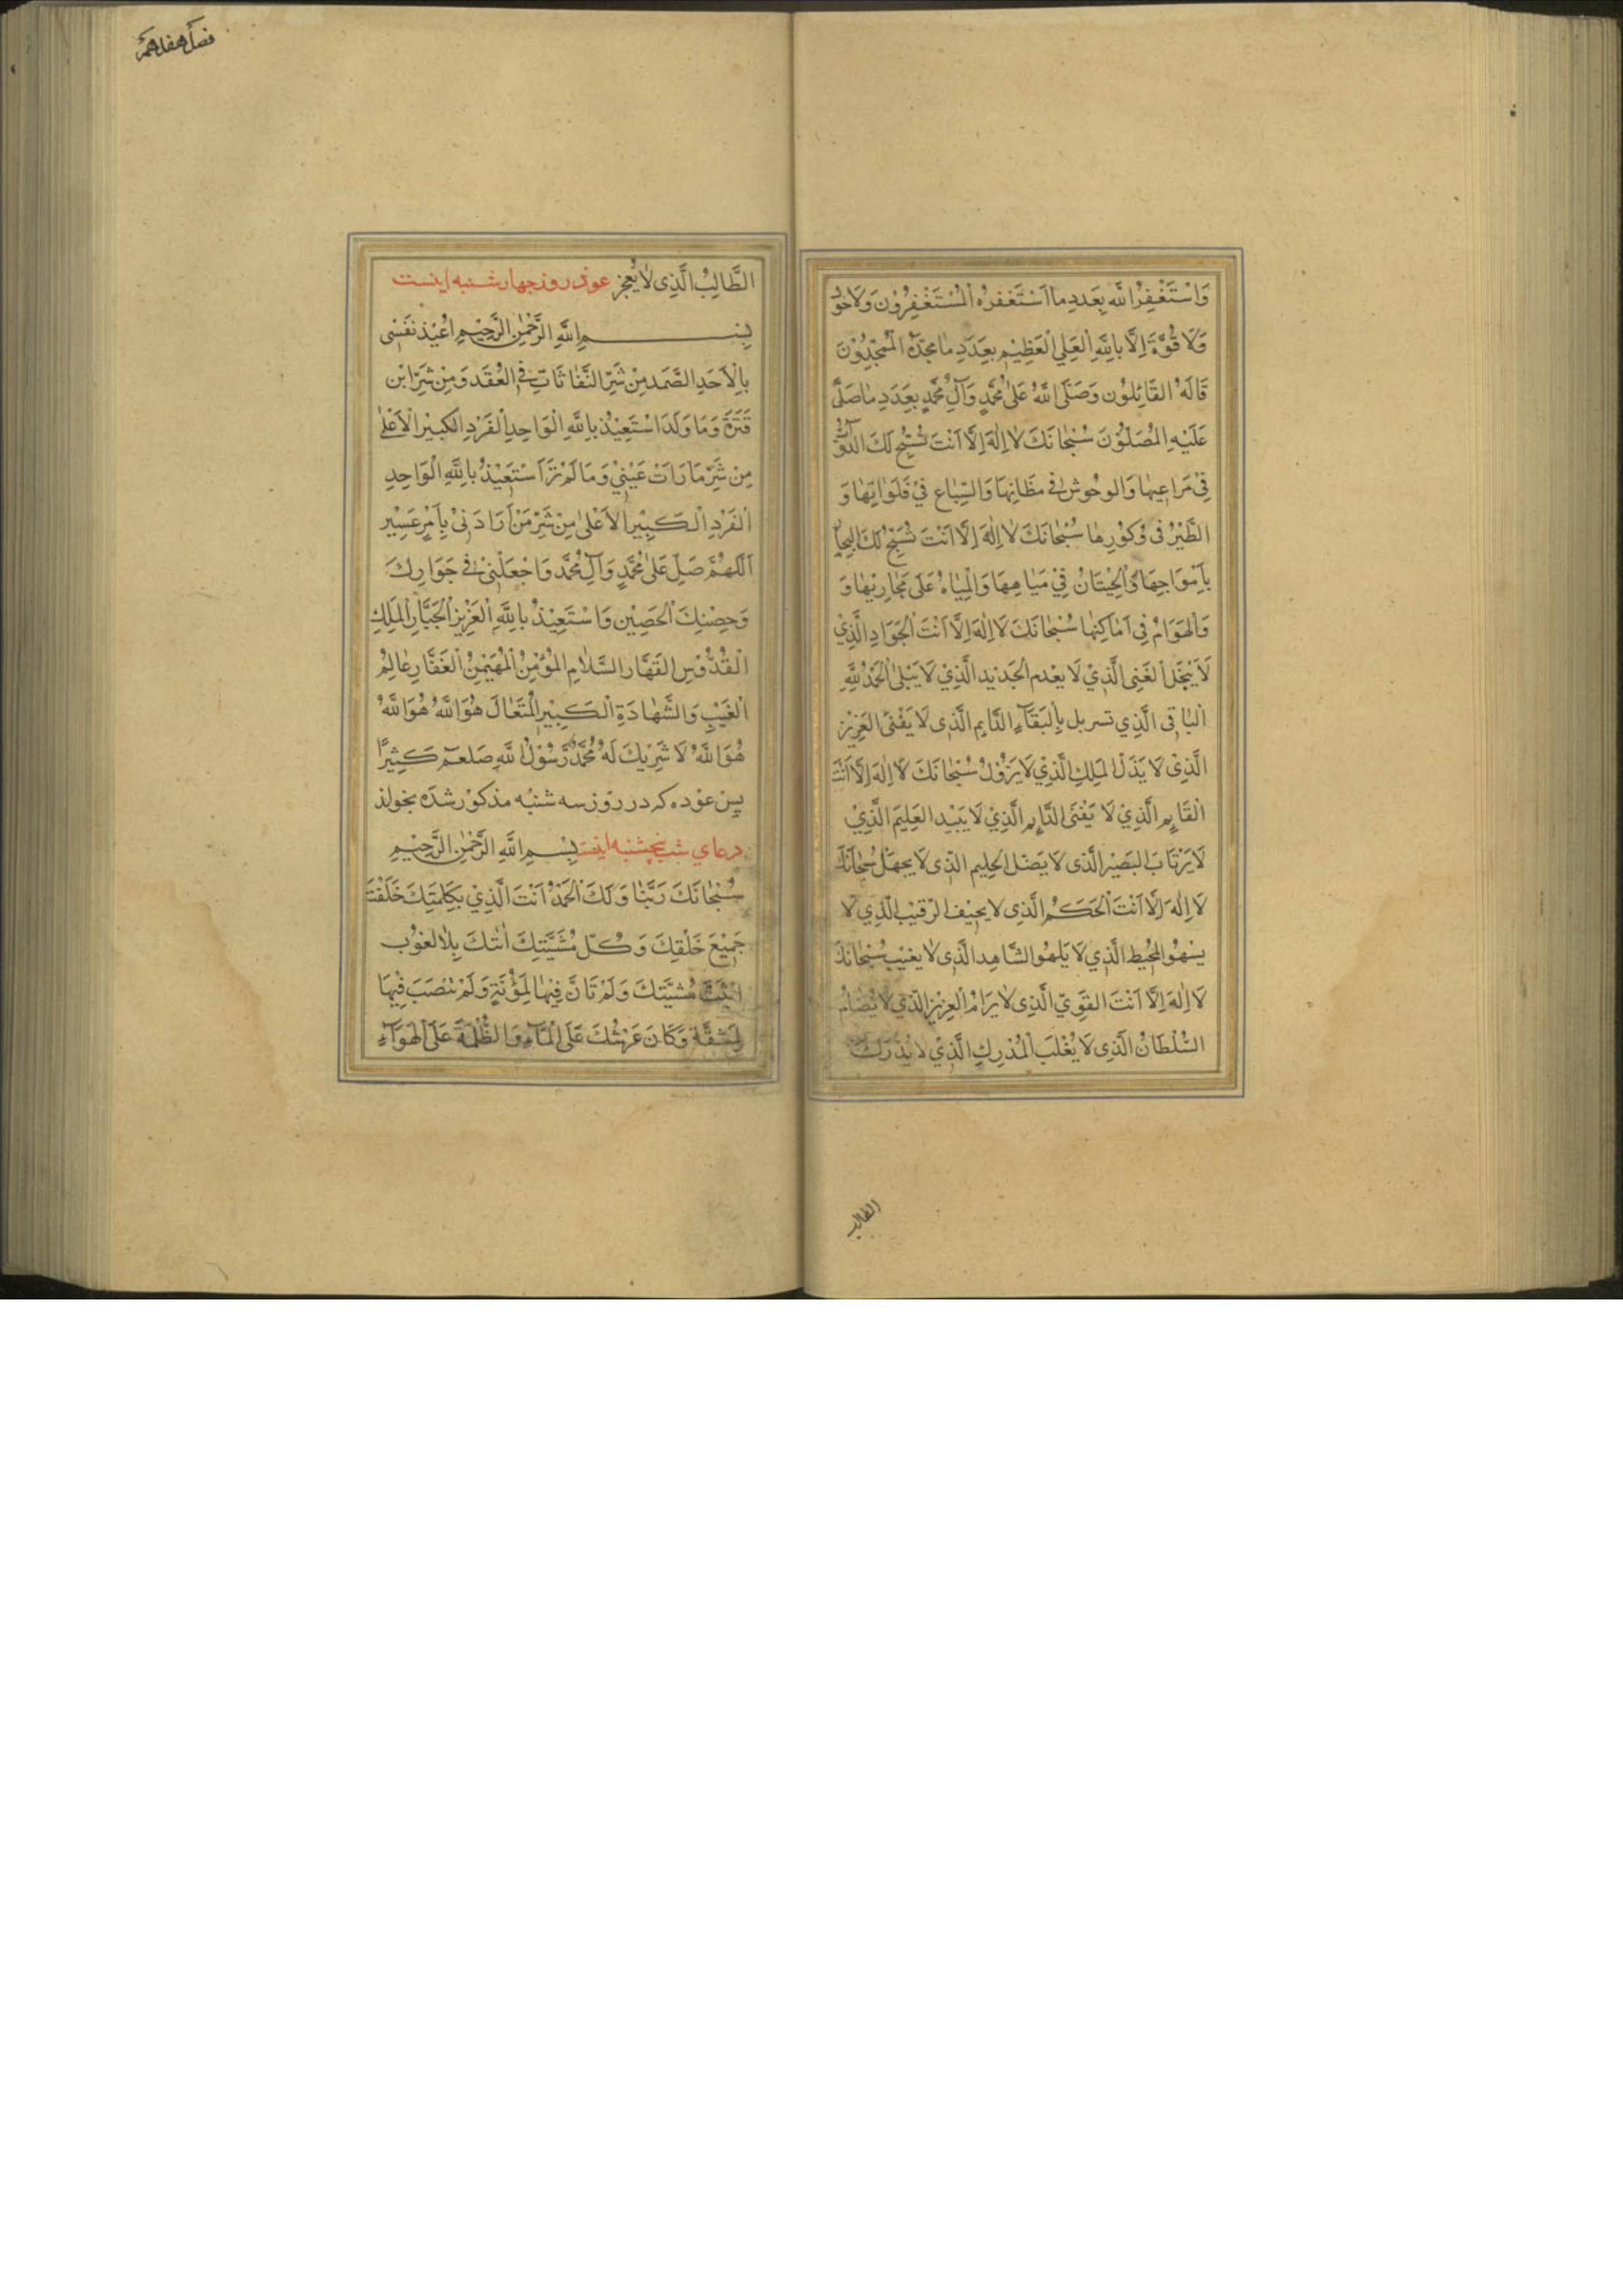 وَاسْتَغْفِرُ اللَّه بِعَدَدِ ما اسْتَغْفَرَهُ الْمُسْتَغْفِرُوْنَ وَلَا حَوْل
وَلَا قُوَّةَ اِلَّا بِاللَّهِ الْعَلِي الْعَظِيْمِ بِعَدَدِ مٰا مَجَّدَهُ الْمُمَجِّدُوْنَ
قَالَهُ القَائِلُون وَصَلَّى اللَّهُ عَلىٰ مُحَمَّدٍ وَآلِ مُحَمَّدٍ بِعَدَدِ مٰا صَلّىٰ
عَلَيْهِ المُصَلّوُنَ سُبْحٰانَكَ لٰا اِلٰهَ اِلَّا اَنْتَ تُسَبِّحُ لَكَ الدَّوٰابُّ
فِيْ مَرَاعِيهٰا وَالوحُوش فِي مظَانِهَا وَالسِّبٰاع فِيْ فَلَوَاتِهٰا وَ
الطَّيْرُ فى وُكُورِهٰا سُبْحٰانَكَ لٰا اِلٰهَ اِلَّا اَنْتَ تُسَبِّحُ لَكَ البِحٰارُ
بِاَمْوَاجِهَا وَالْحِيْتَانُ فِيْ مَيٰاهِهَا وَالْمِيٰاهُ عَلَى مَجَارِيْهٰا وَ
وَالْهَوَامُ فِى اَمٰاكِنِهٰا سُبْحٰانَكَ لَا اِلٰهَ اِلَّا اَنْتَ الْجَوَادِ الَّذِيْ
لَا يَبْخَل الغَنِى الَّذِيْ لَا يعْدم الْجَدْيد الَّذِيْ لَا يَبْلىٰ الْحَمْدُ لِلَّهِ
الْبٰاقى الَّذِي تسربل بِالْبَقَآءِ الدَّايِم الَّذِى لَا يَفْنىٰ العَزِيْز
الَّذِىْ لَا يَذلّ المَلِكِ الَّذِيْ لَا يَزُوْلُ سُبْحٰانَكَ لَا اِلٰهَ اِلَّا اَنْتَ
القَايِمِ الَّذِيْ لَا يَفْنَى الدَّايِمِ الَّذِيْ لَا يَبِيْد العَلِيمَ الَّذِيْ
لَا يَرْتَابَ البَصِيْر الَّذى لا يَضَلّ الحِليم الَّذِى لا يجهَلُ سُبْحٰانَكَ
لَا اِلٰهَ اِلَّا اَنْتَ الْحَكَمُ الَّذِى لا يحِيْف الرّقيْب الَّذِي لَا
يسْهُو المُحِيْط الَّذِي لَا يَلهُو الشَّاهِد الَّذِى لَا يغِيْب سُبْحٰانَكَ
لَا اِلٰهَ اِلَّا اَنْتَ القَوِيّ الَّذِى لٰا يَرَامُ الْعَزِيْزِ الَّذِي لَا يُضَامُ
السُّلْطَانُ الَّذِى لَا يُغْلَبَ الْمُدْرِكِ الَّذِيْ لَا يُدْرَكُ
الطالب
فصل هفدهم
الطَّالِبُ الَّذِى لٰا يُعجز عوذه روز چهارشنبه اينست
بِسْمِ اللَّهِ الرَّحْمٰنِ الرَّحِيْمِ اُعِيْذُ نَفْسْى
بِالْاَحَدِ الصَّمَدِ مِنْ شَرِّ النَّفّٰاثَاتِ فِي العُقَدِ وَمِنْ شَرِّ ابْن
قَتَرَةَ وَمَا وَلَدَ اسْتَعِيْذ بِاللَّهِ الْوَاحِدِ الْفَرْدِ الْكبِيْرِ الْاَعْلىٰ
مِن شَرِّ مَا رَاَتْ عَيْنِيْ وَمَا لَمْ تَرَ اَسْتَعِيْذُ بِاللَّهِ الْوَاحِدِ
الْفَرْدِ الْكَبِيْرِ الاَعْلىٰ مِنْ شَرِّ مَنْ اَرَادَنِىْ بِاَمْرٍ عَسِيْر
اَللَّهُمَّ صَلِّ عَلىٰ مُحَمَّدٍ وَآلِ مُحَمَّد وَاجْعَلْنِى فِي جَوَارِكَ
وَحِصْنِكَ الْحَصِيْن وَاسْتَعِيْذُ بِاللَّهِ الْعَزِيْزِ الْجَبَّارِ الْمَلِكِ
الْقُدُّوْسِ القَهَّارِ السَّلٰامِ المُؤْمِنُ الْمُهَيْمِنُ الْغَفَّارِ عٰالِمُ
الْغَيْبِ وَالشَّهٰادَةِ الْكَبِيْرِ الْمُتَعٰال هُوَ اللَّهُ هُوَ اللَّهُ
هُوَ اللَّهُ لَا شَرِيْكَ لَهُ مُحَمَّدٌ رَّسُوْلُ اللَّهِ صَلعَم كَثِيْرًا
پس عوذه كه در روز سه شنبه مذكور شده بخواند
دعاي شب پنجشنبه اينست بِسْمِ اللَّهِ الرَّحْمٰنِ الرَّحِيْمِ
سُبْحٰانَكَ رَبَّنٰا وَلَكَ الْحَمْدُ اَنْتَ الَّذِيْ بِكَلِمَتِكَ خَلَقْتَ
جَمِيْعَ خَلْقِكَ وَكُلّ مُشَيَّتِكَ اَتتكَ بِلٰا لغوُب
مُشيَّتكَ وَلَمْ تَانَّ فِيْهٰا لِمَؤُنَةٍ وَلَمْ تنصَبَ فِيْهَا
لِمَشقَّة وَكَانَ عَرْشُكَ عَلَى الْمَآءِ وَالظُّلْمَةُ عَلَى الْهَوَآءِ